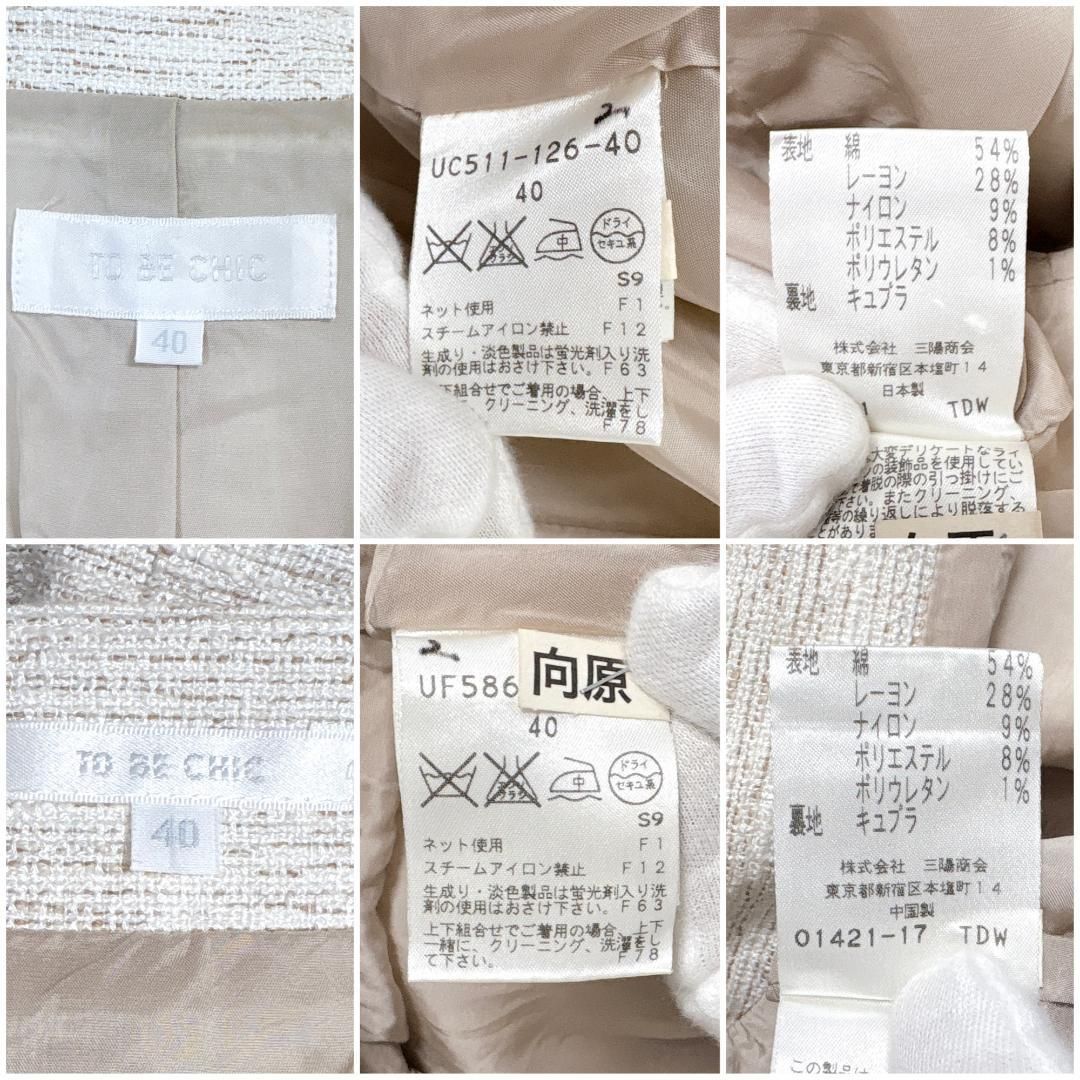 TO BE CHIC
40
UC511-126-40
40
ドライ
セキユ系
S9
ネット使用 F1
スチームアイロン禁止 F12
生成り・淡色製品は蛍光剤入り洗
剤の使用はおさけ下さい。F63
下組合せでご着用の場合、上下
クリーニング、洗濯をし
F78
表地 綿 54%
レーヨン 28%
ナイロン 9%
ポリエステル 8%
ポリウレタン 1%
裏地 キュプラ
株式会社 三陽商会
東京都新宿区本塩町14
日本製
TDW
大変デリケートなライ
の装飾品を使用してい
着脱の際の引っ掛けにご
さい。またクリーニング、
の繰り返しにより脱落する
とがありま
TO BE CHIC
40
UF586
向原
40
ドライ
セキユ系
S9
ネット使用 F1
スチームアイロン禁止 F12
生成り・淡色製品は蛍光剤入り洗
剤の使用はおさけ下さい。F63
上下組合せでご着用の場合、上下
一緒に、クリーニング、洗濯をし
て下さい。 F78
表地 綿 54%
レーヨン 28%
ナイロン 9%
ポリエステル 8%
ポリウレタン 1%
裏地 キュプラ
株式会社 三陽商会
東京都新宿区本塩町14
中国製
01421-17 TDW
この製品は